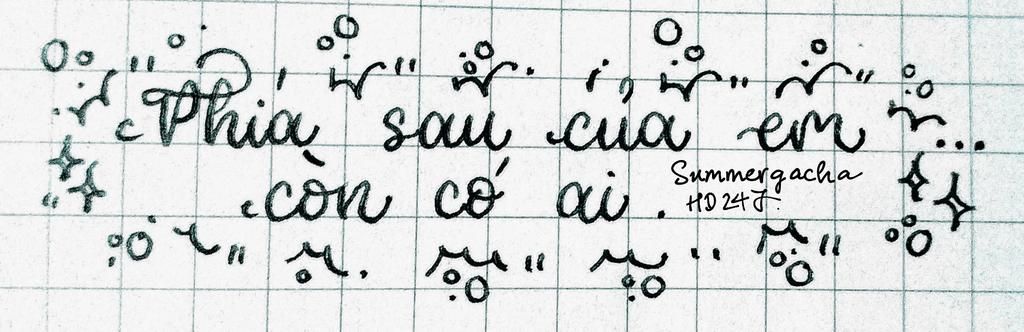 Phía sau của em...
còn có ai.
Summergacha
HD24J.